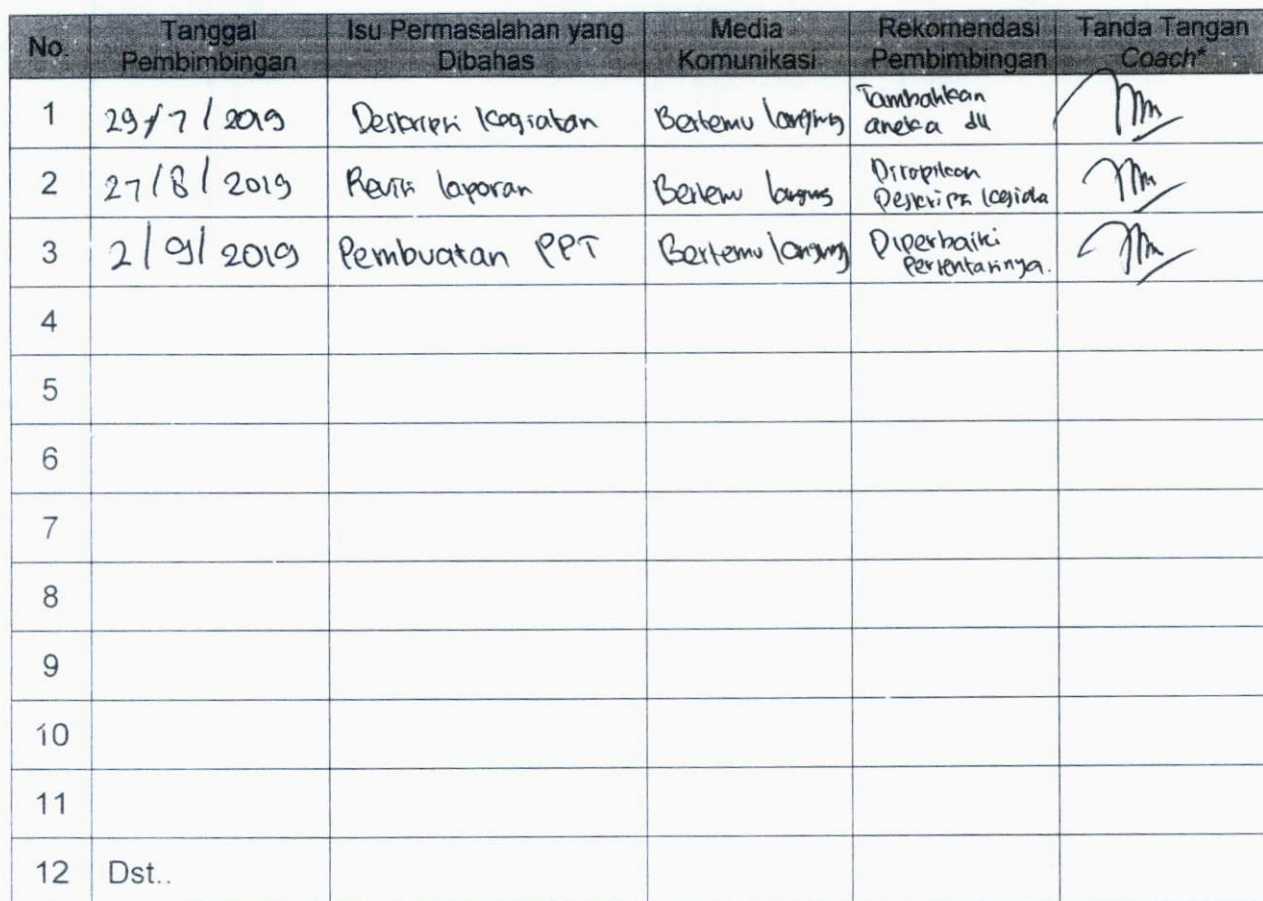 No. Tanggal Pembimbingan Isu Permasalahan yang Dibahas Media Komunikasi Rekomendasi Pembimbingan Tanda Tangan Coach*
1 29/7/2019 Deskripsi Kegiatan Bertemu langsung Tambahkan aneka dll
2 27/8/2019 Revisi laporan Bertemu langsung Dirapikan Deskripsi
3 2/9/2019 Pembuatan PPT Bertemu langsung Diperbaiki
4
5
6
7
8
9
10
11
12 Dst..